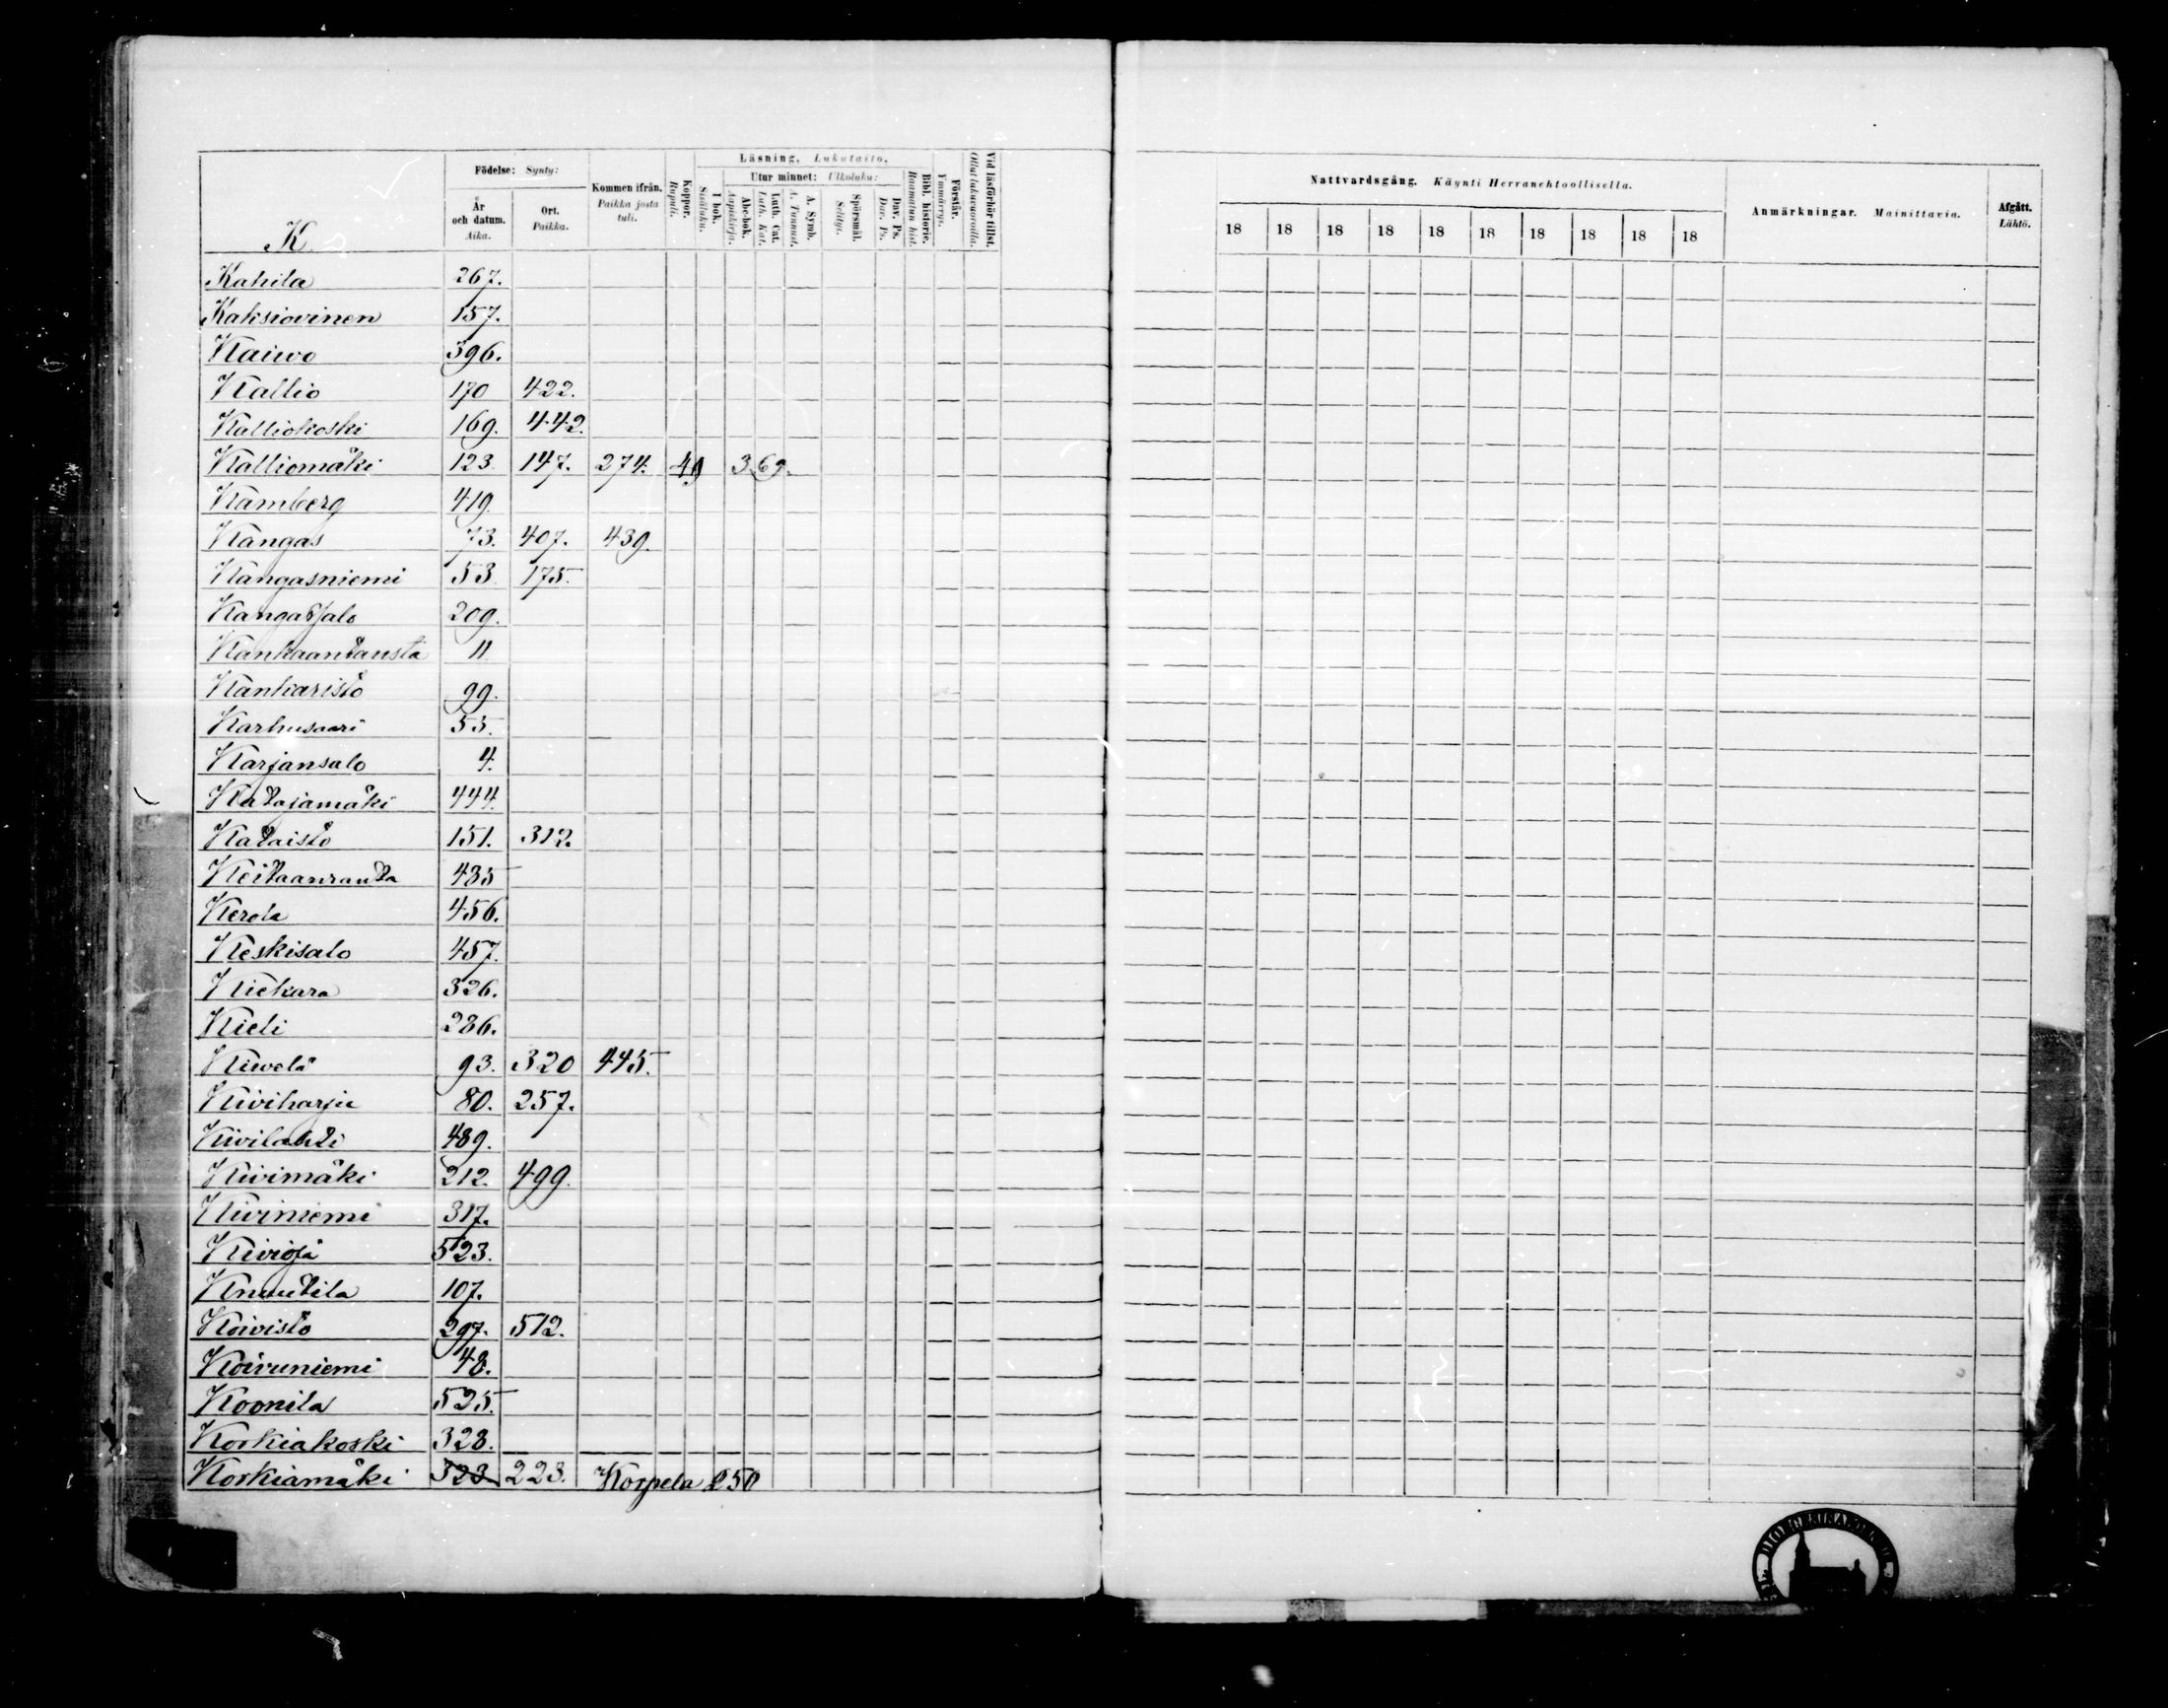 K.
Födelse: Synty:
År och datum. Aika.
Ort. Paikka.
Kommen ifrån. Paikka josta tuli.
Koppor. Rupuli.
Läsning, Lukutaito,
I bok. Sisäluku.
Utur minnet: Ulkoluku:
Abc-bok. Aapiskirja.
Luth. Cat. Luth. Kat.
A. Symb. A. Tunnust.
Spörsmål. Selitys.
Dav. Ps. Dav. Ps.
Bibl. historie. Raamatun hist.
Förstår. Ymmärrys.
Vid läsförhör tillst. Ollut lukuvuoroilla.
Kahila 267.
Kaksiovinen 157.
Kaivo 396.
Kallio 170 422.
Kalliokoski 169. 442.
Kalliomäki 123. 147. 274. 369.
Kamberg 419.
Kangas 73. 407. 439.
Kangasniemi 53. 175.
Kangassalo 209.
Kankaantausta 11
Kankaristo 99.
Karhusaari 55.
Karjansalo 4.
Katajamäki 444.
Kataisto 151. 312.
Keitaanranta 435
Kerola 456.
Keskisalo 457.
Kiekara 326.
Kieli 286.
Kiwelä 93. 320 445.
Kiviharju 80. 257.
Kivilahti 489.
Kivimäki 212. 499.
Kiviniemi 317.
Kivioja 523.
Knuutila 107.
Koivisto 297. 512.
Koivuniemi 48.
Koonila 525.
Korkiakoski 328.
Korkiamäki 323 223. Korpela 250
Nattvardsgång. Käynti Herranehtoollisella.
18 18 18 18 18 18 18 18 18 18
Anmärkningar. Mainittavia.
Afgått. Lähtö.